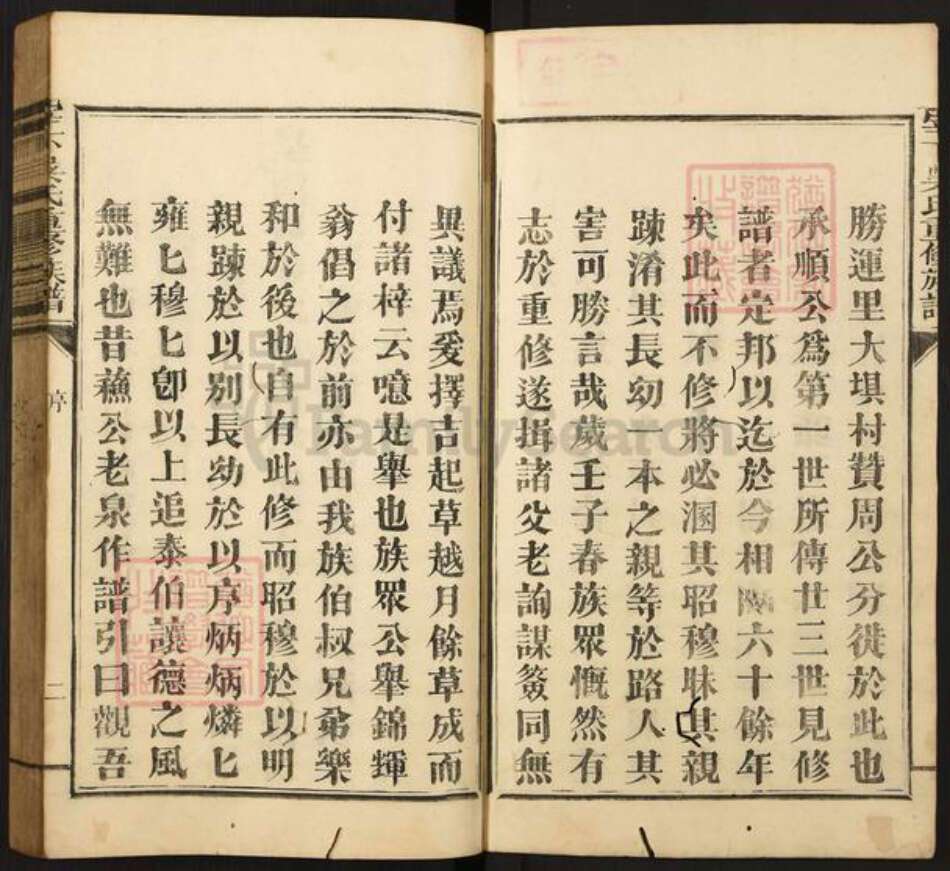 勝運里大垻村贊周公分徙於此也
承順公爲第一世所傳廿三世見修
譜者定邦以迄於今相隔六十餘年
矣此而不修將必溷其昭穆昧其親
踈淆其長幼一本之親等於路人其
害可勝言哉歲壬子春族眾慨然有
志於重修遂揖諸父老詢謀僉同無
異議焉爰擇吉起草越月餘草成而
付諸梓云噫是舉也族眾公舉錦輝
翁倡之於前亦由我族伯叔兄弟樂
和於後也自有此修而昭穆於以明
親踈於以别長幼於以序炳炳燐匕
雍匕穆匕卽以上追泰伯讓德之風
無難也昔蘓公老泉作譜引曰觀吾
吳氏重修族譜
序
二
FamilySearch